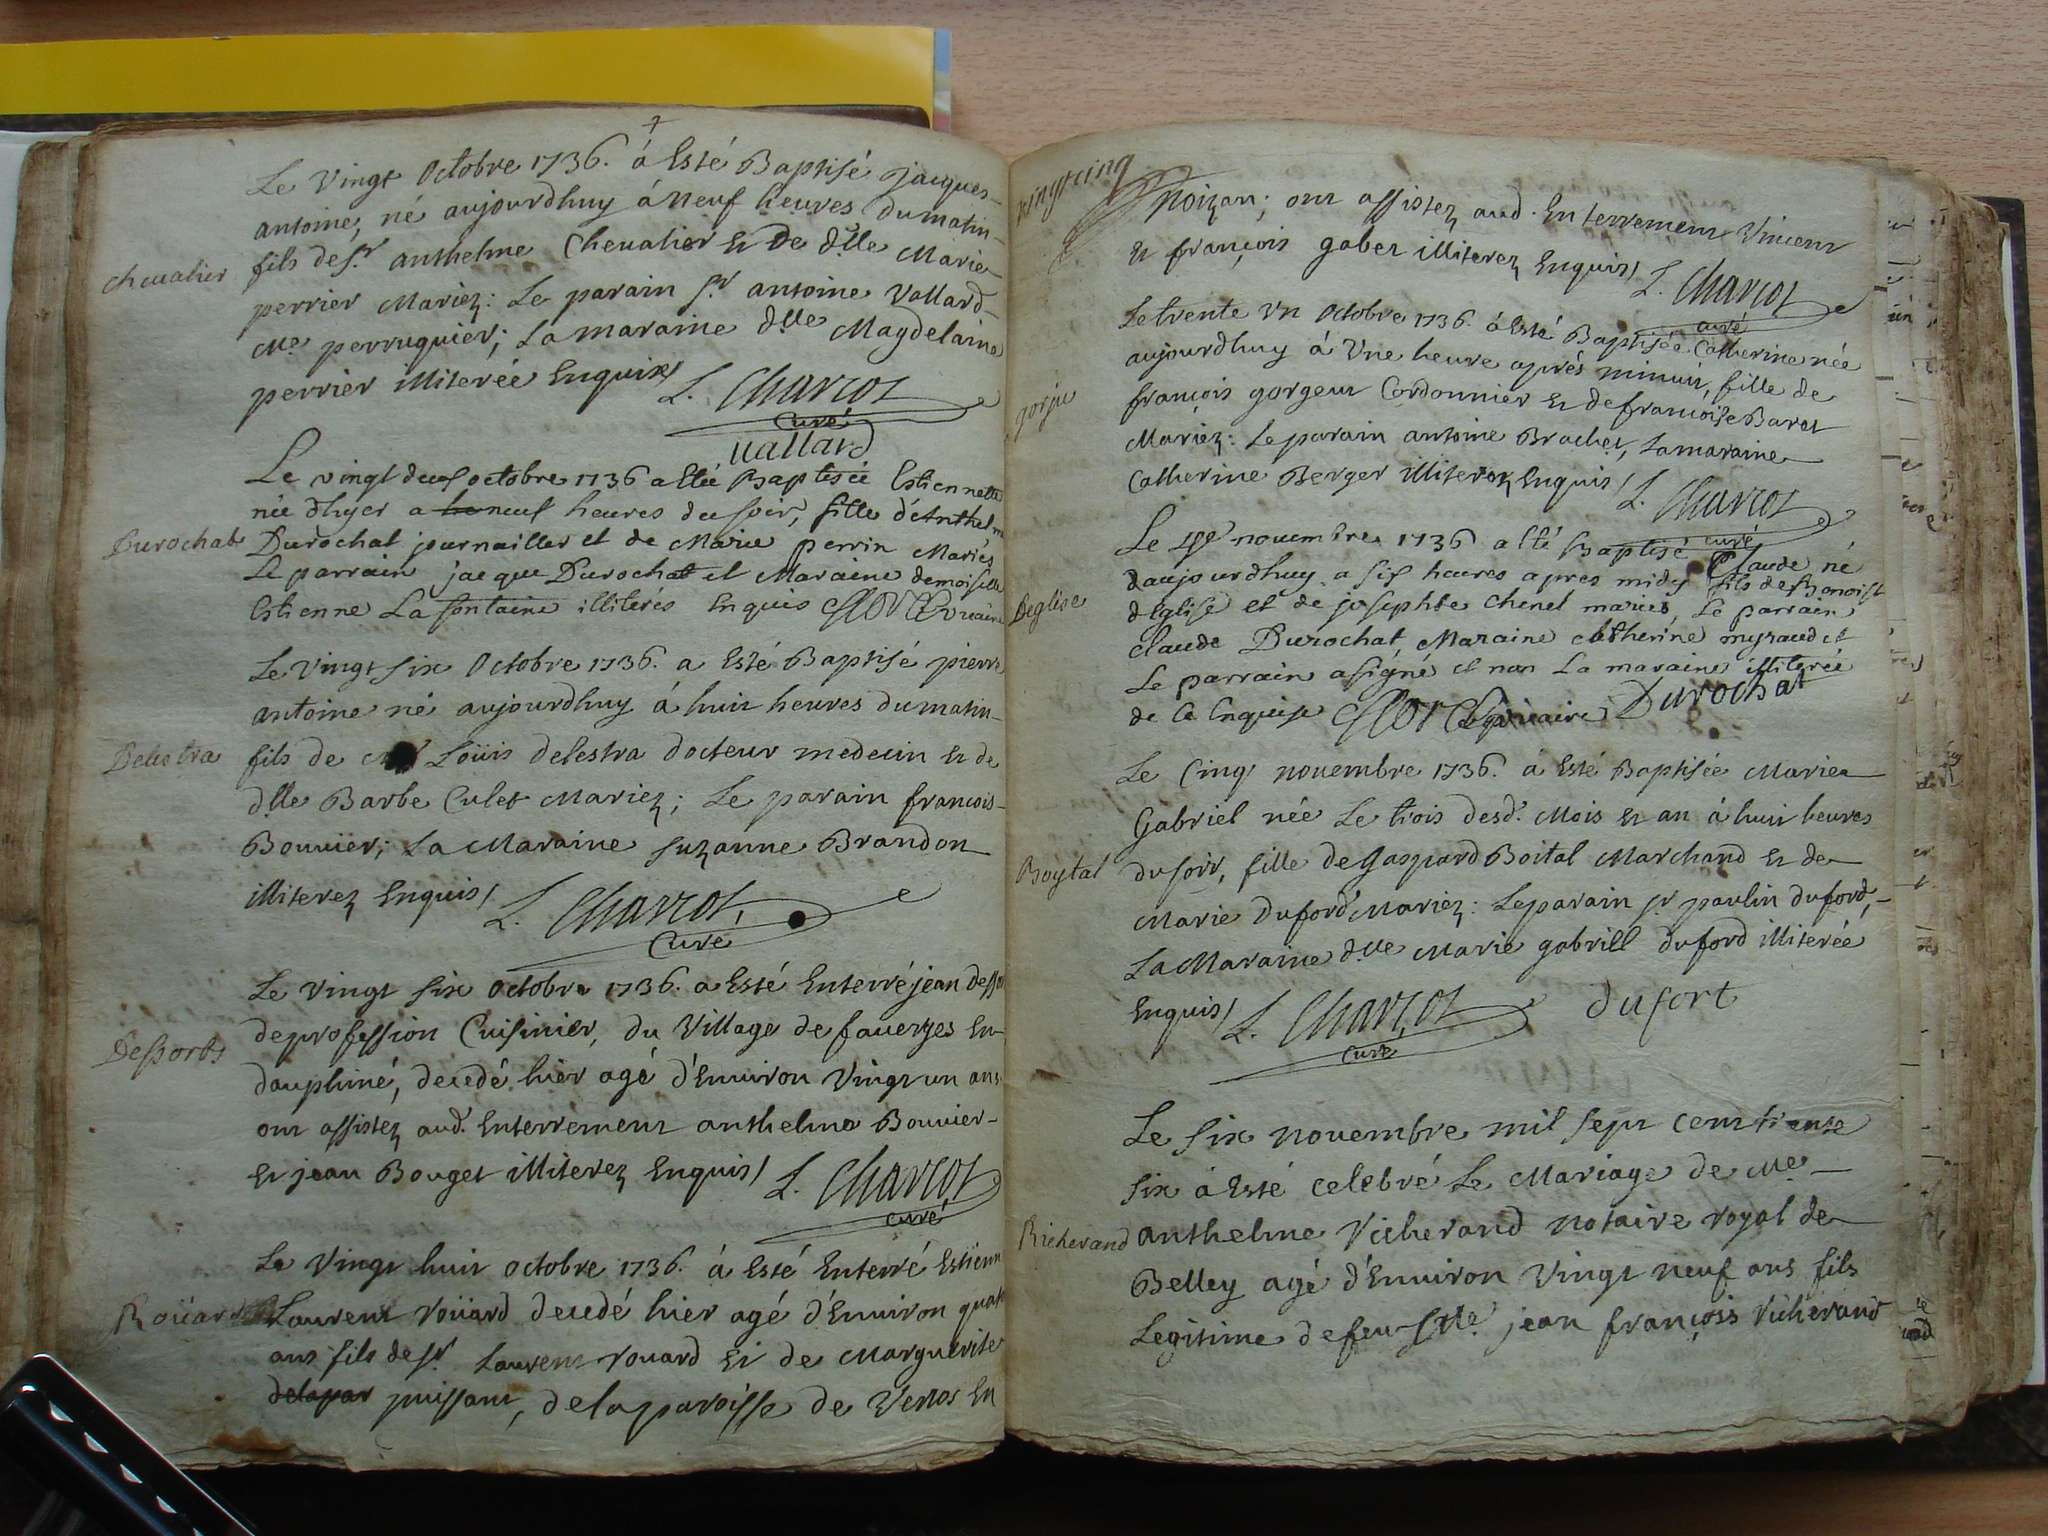 Le vingt Octobre 1736. á Esté Baptisé jacques
antoine, né aujourdhuy á neuf heures du matin
chevalier
fils de sr. anthelme Chevalier et de dlle Marie
perrier Mariez: Le parain sr. antoine Vallard
Me. perruquier; La maraine dlle Magdelaine
perrier illiterée Enquise/ L. Charcot
Curé
vallard
Le vingt deux octobre 1736 a Eté Baptisée Estiennette
née dhyer a neuf heures du soir, fille d'Anthelm
Durochat
Durochat journaillier et de Marie perrin Mariés
Le parrain jacque Durochat et Maraine demoiselle
Estienne La fontaine illiterés Enquis vicaire
Le Vingt six Octobre 1736. a Esté Baptisé pierre
antoine né aujourdhuy á huit heures du matin
Delestra
fils de Loüis delestra docteur medecin et de
dlle Barbe Culet Mariez; Le parain francois
Bouvier; La Maraine suzanne Brandon
illiterez Enquis/ L. Charcot,
Curé
Le vingt six octobre 1736. a Esté Enterré jean
Desports
de profession Cuisinier, du Village de faverges En
dauphiné, decedé hier agé d'Environ Vingt un ans
ont assistez aud. Enterrement anthelme Bouvier
et jean Bouget illiterez Enquis/ L. Charcot
curé
Le Vingt huit octobre 1736. á Esté Enterré Estienn
Roüard
Laurent roüard decedé hier agé d'Environ quat
ans fils de sr. Laurent rouard et de Marguerite
delapar puissant, de la paroisse de En
vingt cinq
Noizan; ont assistez aud. Enterrement Vincent
et françois gaber illiterez Enquis/ L. Charcot
curé
Le trente Un Octobre 1736. á Esté Baptisée Catherine née
aujourdhuy á Une heure aprés minuit, fille de
gorju
françois gorgeut Cordonnier et de francoise Baret
Mariez: Le parain antoine Brachet, La maraine
Catherine Berger illiterez Enquis/ L. Charcot
curé
Le novembre 1736 a Eté Baptisé Claude né
daujourdhuy a six heures apres midy fils de Benoist
Deglise
déglise et de josephte Chenel mariés Le parrain
Claude Durochat, Maraine Catherine et
Le parrain a signé et non La maraine illiterée
de Ce Enquise vicaire Durochat
Le Cinq novembre 1736. á Esté Baptisée Marie
Gabriel née Le trois desd. Mois et an á huit heures
Boytal
du soir, fille de Gaspard Boital Marchand et de
Marie Duford Mariez: Le parain sr. paulin duford,
La Maraine dlle Marie gabrill duford illiterée
Enquis/ L. Charcot dufort
curé
Le six novembre mil sept cent trente
six á Esté celebré Le Mariage de Me.
Richerand
anthelme Richerand notaire royal de
Belley agé d'Environ Vingt neuf ans fils
Legitime de feu jean françois Richerand